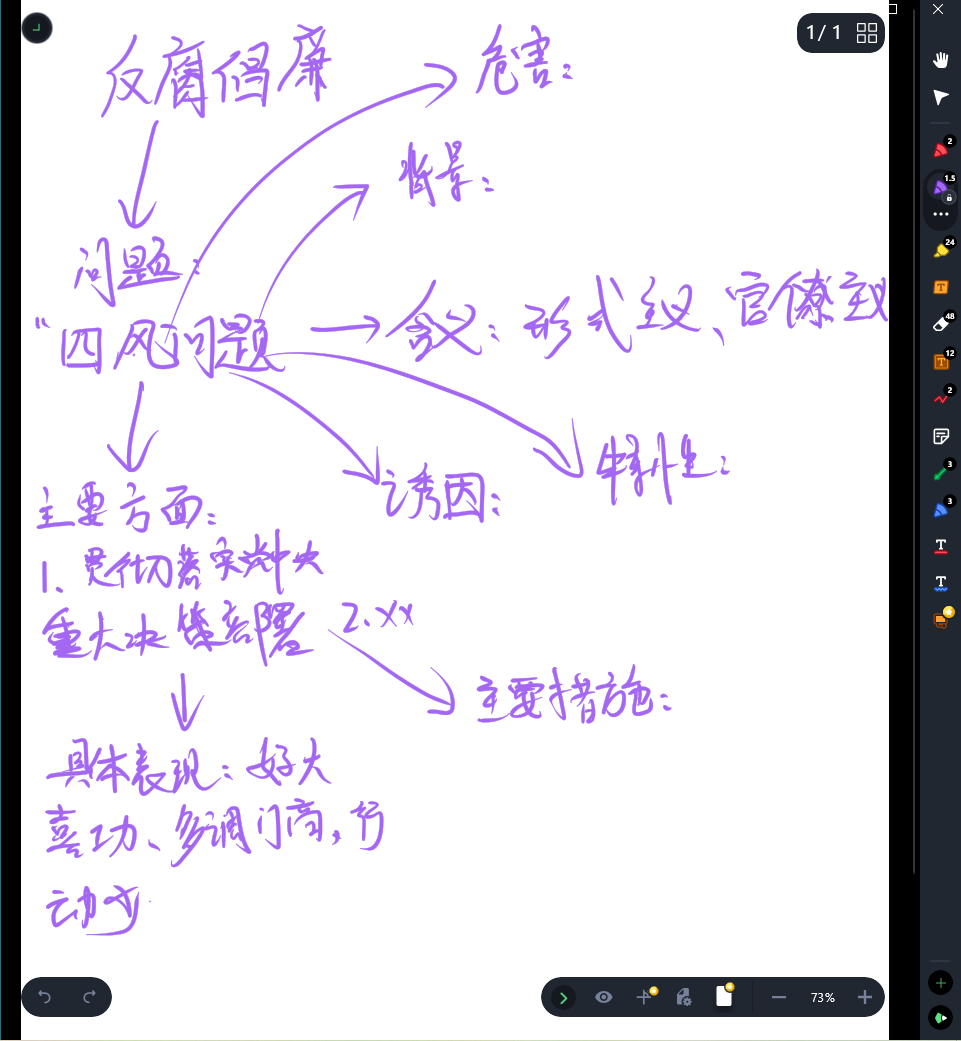 1/1
反腐倡廉
危害：
背景：
问题：
“四风问题
含义：形式主义、官僚主义
特性：
诱因：
主要方面：
1、贯彻落实党中央
重大决策部署
2.xx
主要措施：
具体表现：好大
喜功、多调门高，行
动少
2
1.5
24
48
12
2
3
3
73%